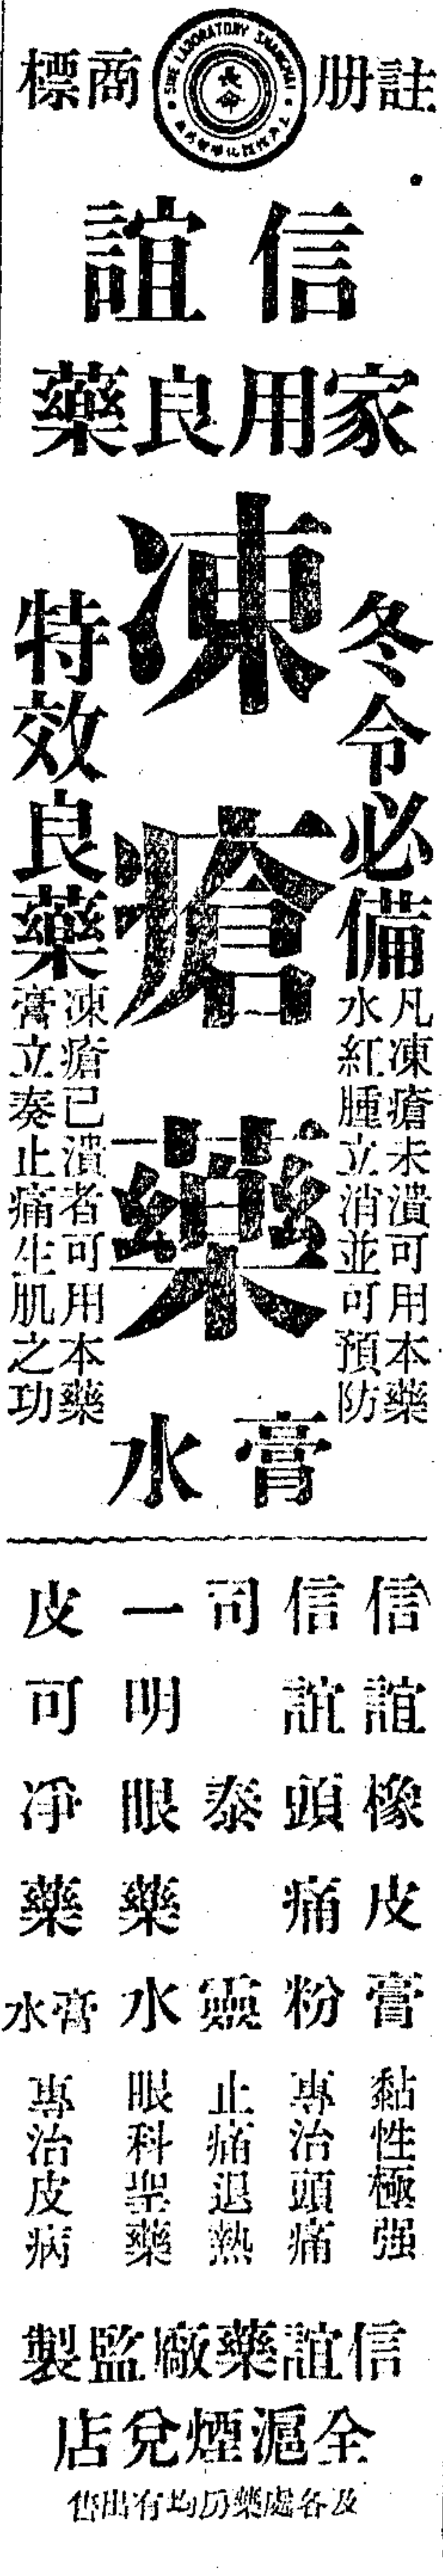 註册商標
SINE LABORATORY SHANGHAI
長命
信誼
家用良藥
冬令必備
凡凍瘡未潰可用本藥
水紅腫立消並可預防
凍瘡藥膏水
特效良藥
凍瘡已潰者可用本藥
膏立奏止痛生肌之功
信誼橡皮膏
黏性極强
信誼頭痛粉
專治頭痛
司泰靈
止痛退熱
一明眼藥水
眼科聖藥
皮可淨藥膏水
專治皮病
信誼藥廠監製
全滬煙兌店
及各處藥房均有出售